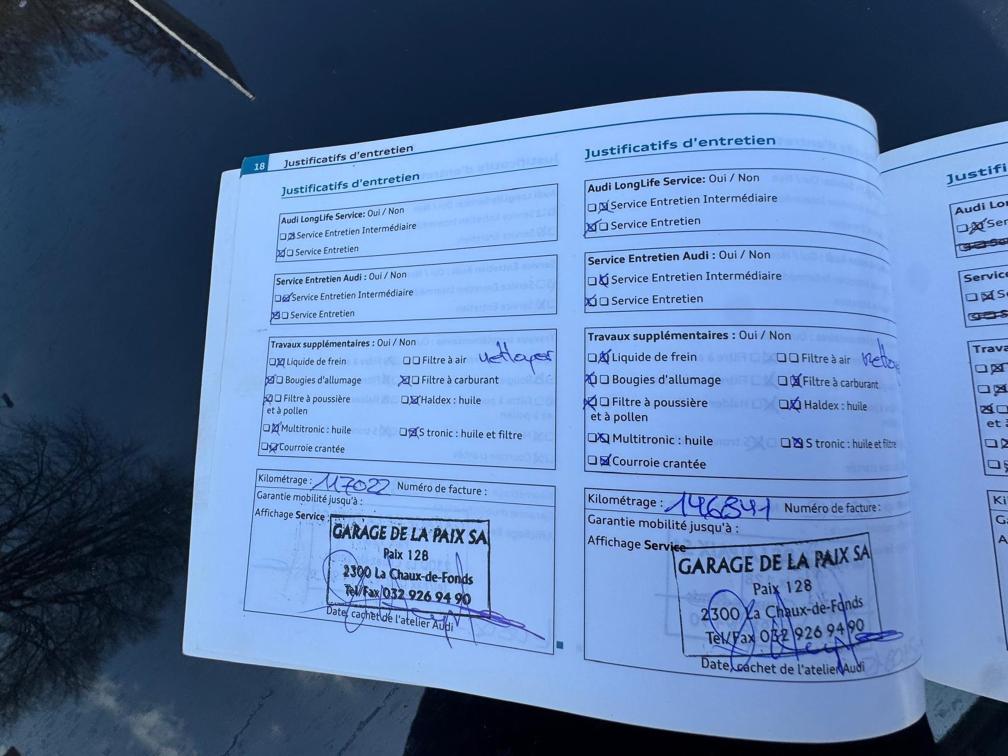 18 Justificatifs d'entretien
Justificatifs d'entretien
Audi LongLife Service: Oui / Non
Service Entretien Intermédiaire
Service Entretien
Service Entretien Audi : Oui / Non
Service Entretien Intermédiaire
Service Entretien
Travaux supplémentaires : Oui / Non
Liquide de frein Filtre à air nettoyer
Bougies d'allumage Filtre à carburant
Filtre à poussière Haldex : huile
et à pollen
Multitronic : huile S tronic : huile et filtre
Courroie crantée
Kilométrage : 117022 Numéro de facture :
Garantie mobilité jusqu'à :
Affichage Service
GARAGE DE LA PAIX SA
Paix 128
2300 La Chaux-de-Fonds
Tel/Fax 032 926 94 90
Date, cachet de l'atelier Audi
Justificatifs d'entretien
Audi LongLife Service: Oui / Non
Service Entretien Intermédiaire
Service Entretien
Service Entretien Audi : Oui / Non
Service Entretien Intermédiaire
Service Entretien
Travaux supplémentaires : Oui / Non
Liquide de frein Filtre à air
Bougies d'allumage Filtre à carburant
Filtre à poussière Haldex : huile
et à pollen
Multitronic : huile S tronic : huile et filtre
Courroie crantée
Kilométrage : 146841 Numéro de facture :
Garantie mobilité jusqu'à :
Affichage Service
GARAGE DE LA PAIX SA
Paix 128
2300 La Chaux-de-Fonds
Tel/Fax 032 926 94 90
Date, cachet de l'atelier Audi
Justifi
Audi Lo
Service
Trava